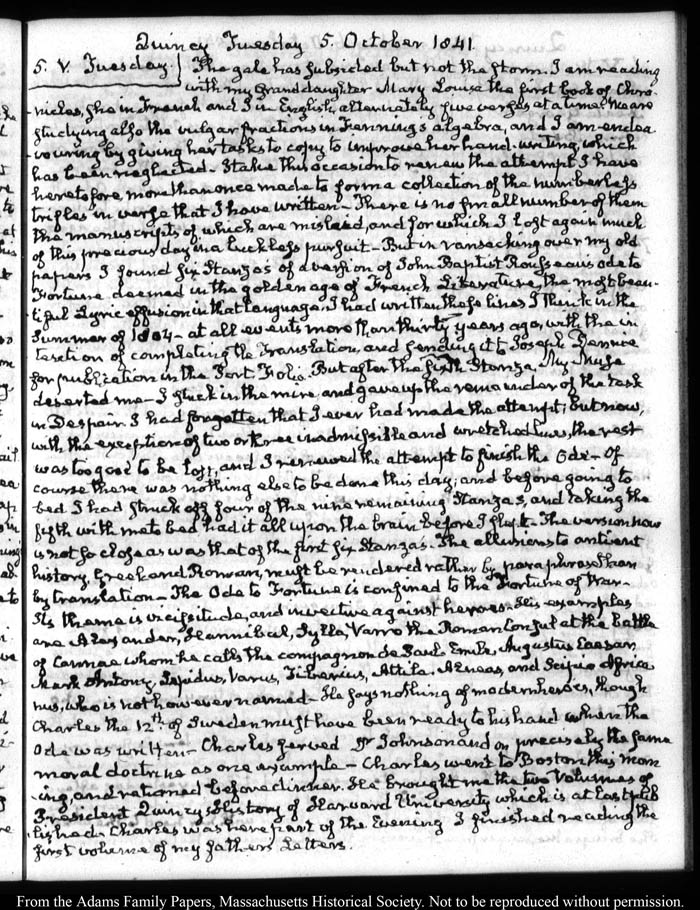 Quincy Tuesday 5. October 1841.
5. V. Tuesday} The gale has subsided but not the storm. I am reading
with my Granddaughter Mary Louisa the first book of Chro-
nicles, she in French and I in English, alternately five verses at a time. We are
studying also the vulgar fractions in Fenning's algebra, and I am endea-
vouring by giving her tasks to copy to improve her hand-writing, which
has been neglected. I take this occasion to renew the attempt I have
heretofore more than once made to form a collection of the numberless
trifles in verse that I have written. There is no small number of them
the manuscripts of which are mislaid, and for which I lost again much
of this precious day in a luckless pursuit. But in ransacking over my old
papers I found six Stanza's of a version of John Baptist Rousseau's ode to
Fortune deemed in the golden age of French Literature, the most beau-
tiful Lyric effusion in that language. I had written those lines I think in the
Summer of 1804 - at all events more than thirty years ago, with the in
tention of completing the Translation, and sending it to Joseph Dennie
for publication in the Port Folio. But after the sixth Stanza, My Muse
deserted me - I stuck in the mire and gave up the remainder of the task
in Despair. I had forgotten that I ever had made the attempt; but now,
with the exception of two or three inadmissible and wretched lines, the rest
was too good to be lost, and I renewed the attempt to finish the Ode - Of
course there was nothing else to be done this day; and before going to
bed I had struck off four of the nine remaining Stanzas, and taking the
fifth with me to bed had it all upon the brain before I slept. The version now
is not so close as was that of the first six Stanzas. The allusions to antient
history, Greek and Roman, must be rendered rather by paraphrase than
by translation - The Ode to Fortune is confined to the Fortune of War.
Its theme is vicissitude, and invective against heroes. His examples
are Alexander, Hannibal, Sylla, Varro the Roman Consul at the battle
of Cannae whom he calls the compagnon de Paul Emile, Augustus Caesar,
Mark Antony, Lepidus, Varus, Tiberius, Attila, Aeneas, and Scipio Africa
nus, who is not however named. He says nothing of modern heroes, though
Charles the 12th. of Sweden must have been ready to his hand when the
Ode was written - Charles served Dr Johnson and on precisely the same
moral doctrine as one example - Charles went to Boston this morn
ing, and returned before dinner. He brought me the two Volumes of
President Quincy's History of Harvard University which is at last pub
lished. Charles was here part of the Evening I finished reading the
first volume of my father's Letters.
From the Adams Family Papers, Massachusetts Historical Society. Not to be reproduced without permission.